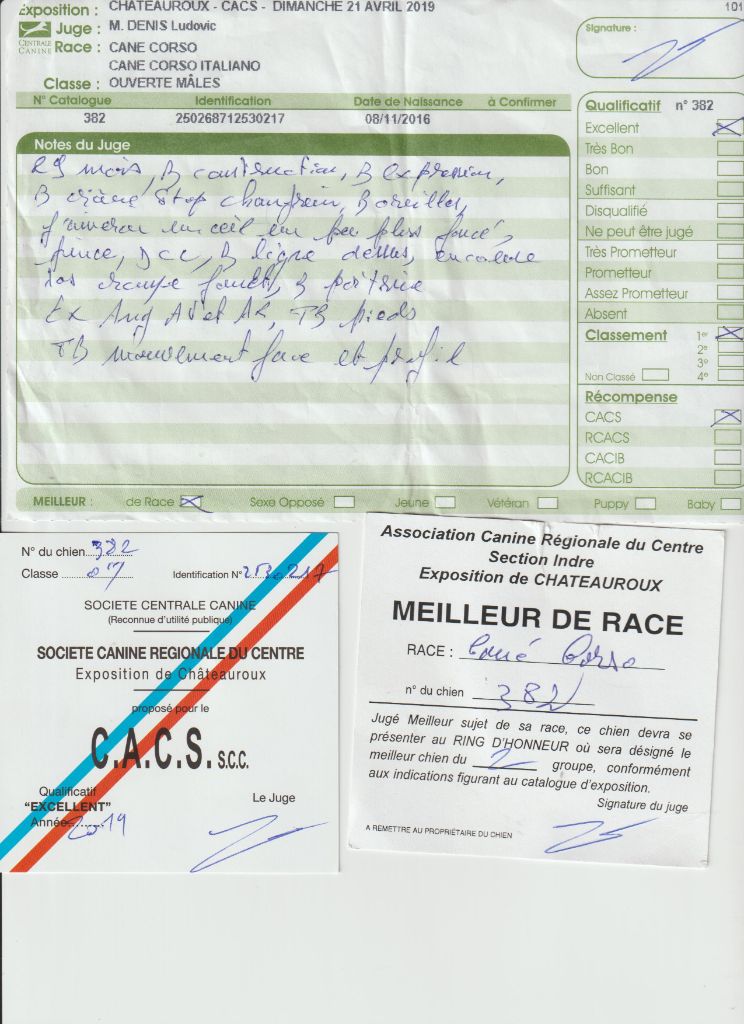 Exposition : CHATEAUROUX - CACS - DIMANCHE 21 AVRIL 2019
101
CENTRALE CANINE
Juge : M. DENIS Ludovic
Race : CANE CORSO
CANE CORSO ITALIANO
Classe : OUVERTE MÂLES
Signature :
N° Catalogue Identification Date de Naissance à Confirmer
382 250268712530217 08/11/2016
Notes du Juge
29 mois, B construction, B expression,
B crâne stop chanfrein, B oreilles,
j'aimerai un oeil un peu plus foncé,
pince, B ligne dessus, encolure
B poitrine
Ex Ang AV et AR, TB pieds
TB mouvement face et profil
Qualificatif n° 382
Excellent
Très Bon
Bon
Suffisant
Disqualifié
Ne peut être jugé
Très Prometteur
Prometteur
Assez Prometteur
Absent
Classement 1er
2e
3e
Non Classé 4e
Récompense
CACS
RCACS
CACIB
RCACIB
MEILLEUR : de Race Sexe Opposé Jeune Vétéran Puppy Baby
N° du chien 382
Classe Identification N° 2530217
SOCIETE CENTRALE CANINE
(Reconnue d'utilité publique)
SOCIETE CANINE REGIONALE DU CENTRE
Exposition de Châteauroux
proposé pour le
C.A.C.S. S.C.C.
Qualificatif
"EXCELLENT"
Le Juge
Année 2019
Association Canine Régionale du Centre
Section Indre
Exposition de CHATEAUROUX
MEILLEUR DE RACE
RACE : Cané Corso
n° du chien 382
Jugé Meilleur sujet de sa race, ce chien devra se
présenter au RING D'HONNEUR où sera désigné le
meilleur chien du 2 groupe, conformément
aux indications figurant au catalogue d'exposition.
Signature du juge
A REMETTRE AU PROPRIÉTAIRE DU CHIEN